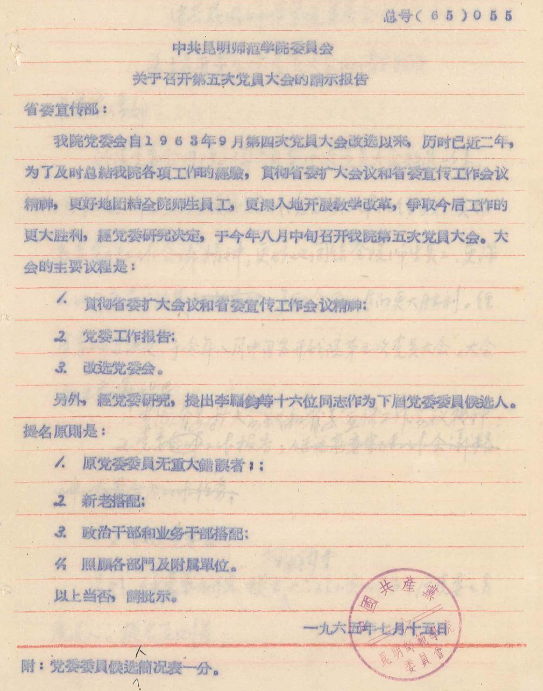 总号(65)055
中共昆明师范学院委員会
关于召开第五次党員大会的請示报告
省委宣传部:
我院党委会自1963年9月第四次党員大会改选以来,历时已近二年,
为了及时总結我院各項工作的經驗,貫彻省委扩大会议和省委宣传工作会议
精神,更好地团結全院师生員工,更深入地开展教学改革,爭取今后工作的
更大胜利,經党委研究决定,于今年八月中旬召开我院第五次党員大会。大
会的主要议程是:
1. 貫彻省委扩大会议和省委宣传工作会议精神:
2. 党委工作报告:
3. 改选党委会。
另外,經党委研究,提出李福鈞等十六位同志作为下届党委委員候选人。
提名原則是:
1. 原党委委員无重大錯誤者;;
2. 新老搭配;
3. 政治干部和业务干部搭配;
4. 照顧各部門及附属单位。
以上当否,請批示。
一九六五年七月十五日
中國共產黨
昆明師範學院
委員會
附:党委委員候选簡况表一分。